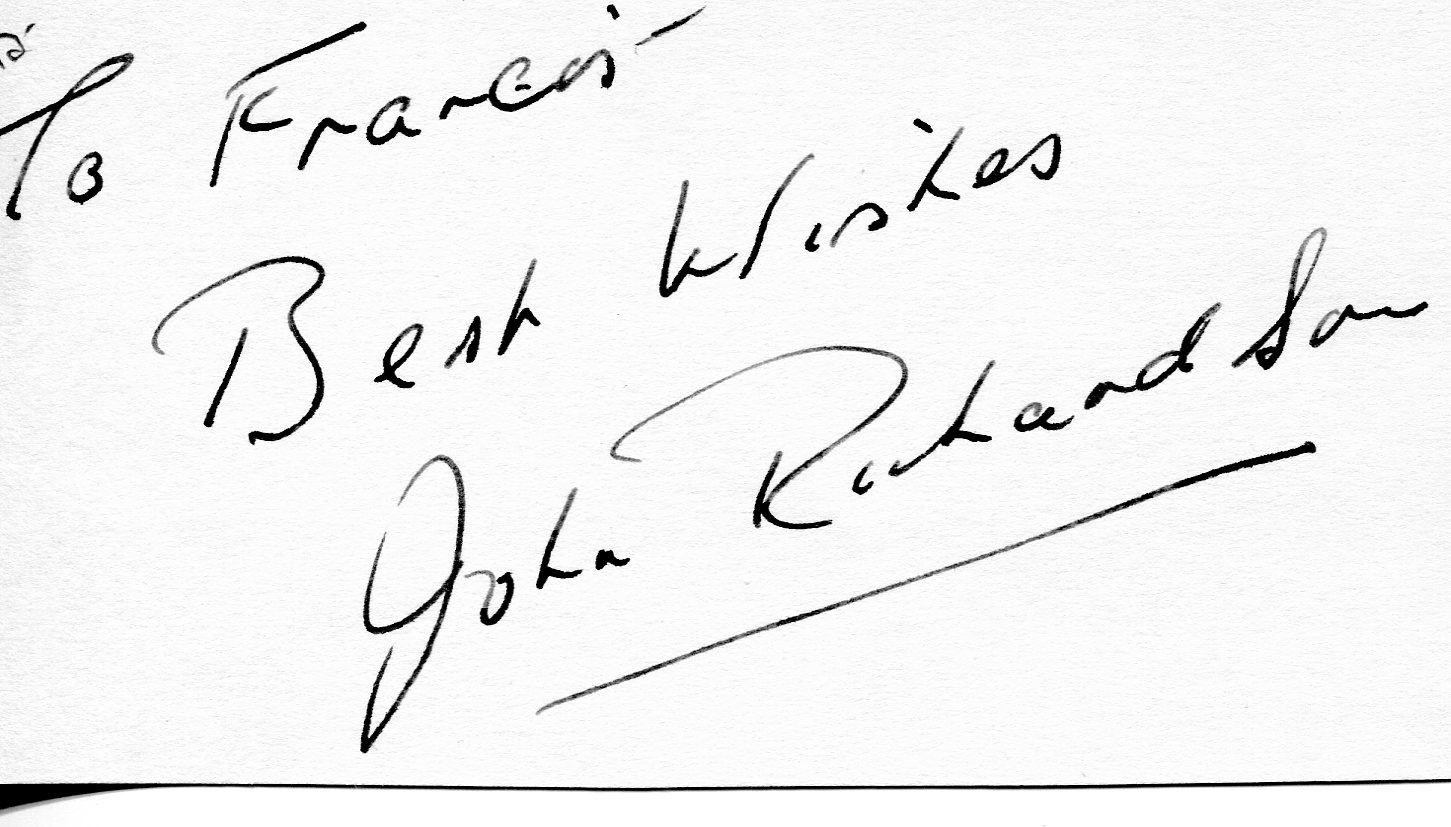 To Francis -
Best Wishes
John Richardson